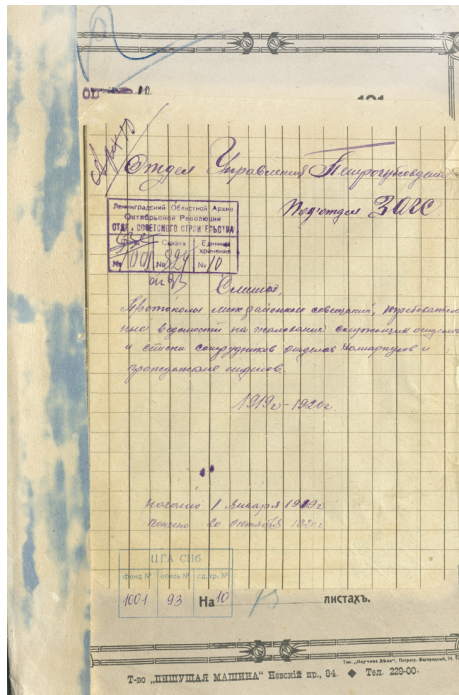 Отдел Управления Петрогубсовдепа
Подотдел ЗАГС
Ленинградский Областной Архив
Октябрьской Революции
ОТДЕЛ СОВЕТСКОГО СТРОИТЕЛЬСТВА
Фонд Связка Единица
хранения
№ 1001 № 824 № 10
оп 93
Протоколы междурайонных совещаний, требователь-
ные ведомости на жалование служащих отдела
и списки сотрудников отделов
гражданских отделов.
1919г-1920г.
Начато 1 Января 1919г
20 Октября 1920г
ЦГА СПб
фонд № опись № ед.хр. №
1001 93 10
На листахъ.
Т-во „ПИШУЩАЯ МАШИНА" Невскій пр., 84. ◆ Тел. 229-00.